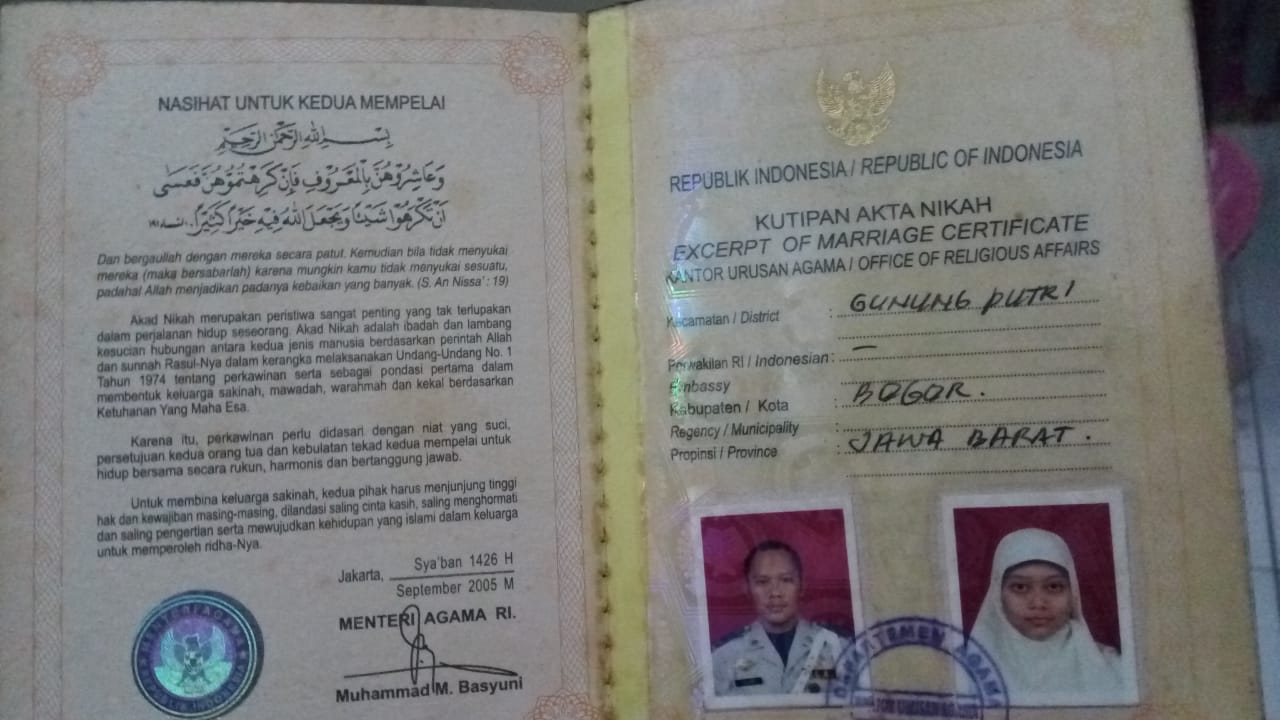 NASIHAT UNTUK KEDUA MEMPELAI
بِسْــمِ اللهِ الرَّحْمَنِ الرَّحِيْمِ
وَعَاشِرُوْهُنَّ بِالْمَعْرُوْفِ فَاِنْ كَرِهْتُمُوْهُنَّ فَعَسٰى
اَنْ تَكْرَهُوْا شَيْئًا وَّيَجْعَلَ اللهُ فِيْهِ خَيْرًا كَثِيْرًا. النساء ١٩
Dan bergaullah dengan mereka secara patut. Kemudian bila tidak menyukai
mereka (maka bersabarlah) karena mungkin kamu tidak menyukai sesuatu,
padahal Allah menjadikan padanya kebaikan yang banyak. (S. An Nissa' : 19)
Akad Nikah merupakan peristiwa sangat penting yang tak terlupakan
dalam perjalanan hidup seseorang. Akad Nikah adalah ibadah dan lambang
kesucian hubungan antara kedua jenis manusia berdasarkan perintah Allah
dan sunnah Rasul-Nya dalam kerangka melaksanakan Undang-Undang No. 1
Tahun 1974 tentang perkawinan serta sebagai pondasi pertama dalam
membentuk keluarga sakinah, mawadah, warahmah dan kekal berdasarkan
Ketuhanan Yang Maha Esa.
Karena itu, perkawinan perlu didasari dengan niat yang suci,
persetujuan kedua orang tua dan kebulatan tekad kedua mempelai untuk
hidup bersama secara rukun, harmonis dan bertanggung jawab.
Untuk membina keluarga sakinah, kedua pihak harus menjunjung tinggi
hak dan kewajiban masing-masing, dilandasi saling cinta kasih, saling menghormati
dan saling pengertian serta mewujudkan kehidupan yang islami dalam keluarga
untuk memperoleh ridha-Nya.
Jakarta, Sya'ban 1426 H
September 2005 M
MENTERI AGAMA RI.
Muhammad M. Basyuni
REPUBLIK INDONESIA / REPUBLIC OF INDONESIA
KUTIPAN AKTA NIKAH
EXCERPT OF MARRIAGE CERTIFICATE
KANTOR URUSAN AGAMA / OFFICE OF RELIGIOUS AFFAIRS
Kecamatan / District : GUNUNG PUTRI
Perwakilan RI / Indonesian : —
Embassy
Kabupaten / Kota : BOGOR.
Regency / Municipality :
Propinsi / Province : JAWA BARAT.
AGAMA